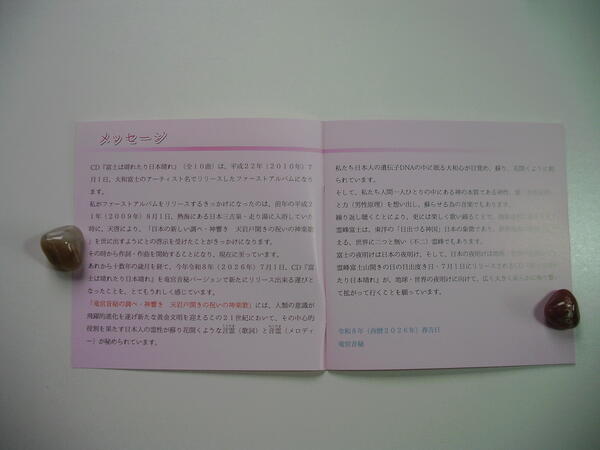 メッセージ
CD『富士は晴れたり日本晴れ』(全10曲)は、平成22年(2010年)7
月1日、大和富士のアーティスト名でリリースしたファーストアルバムになりま
す。
私がファーストアルバムをリリースするきっかけになったのは、前年の平成2
1年(2009年)8月1日、熱海にある日本三古泉・走り湯に入浴していた
時に、天啓により、「日本の新しい調べ・神響き 天岩戸開きの祝いの神楽歌
」を世に出すようにとの啓示を受けたことがきっかけになります。
その時から作詞・作曲を開始することになり、現在に至っています。
あれから十数年の歳月を経て、今年令和8年(2026年)7月1日、CD『富
士は晴れたり日本晴れ』を竜宮音秘バージョンで新たにリリース出来る運びと
なったことを、とてもうれしく感じています。
「竜宮音秘の調べ・神響き 天岩戸開きの祝いの神楽歌」には、人類の意識が
飛躍的進化を遂げ新たな黄金文明を迎えるこの21世紀において、その中心的
役割を果たす日本人の霊性が蘇り花開くような言霊(歌詞)と音霊(メロディ
ー)が秘められています。
私たち日本人の遺伝子DNAの中に眠る大和心が目覚め、蘇り、花開くように創
られています。
そして、私たち人間一人ひとりの中にある神の本質である神性、愛
と力(男性原理)を想い出し、蘇らせる為の音楽でもあります。
繰り返し聴くことにより、更には楽しく歌い踊ることで、
霊峰富士は、東洋の「日出づる神国」日本の象徴であり、
える、世界に二つと無い(不二)霊峰でもあります。
富士の夜明けは日本の夜明け、そして、日本の夜明けは地球・世界の夜明け
霊峰富士山開きの日の目出度き日・7月1日にリリースされる
たり日本晴れ』が、地球・世界の夜明けに向けて、広く大きく
て拡がって行くことを願っています。
令和8年(西暦2026年)春吉日
竜宮音秘